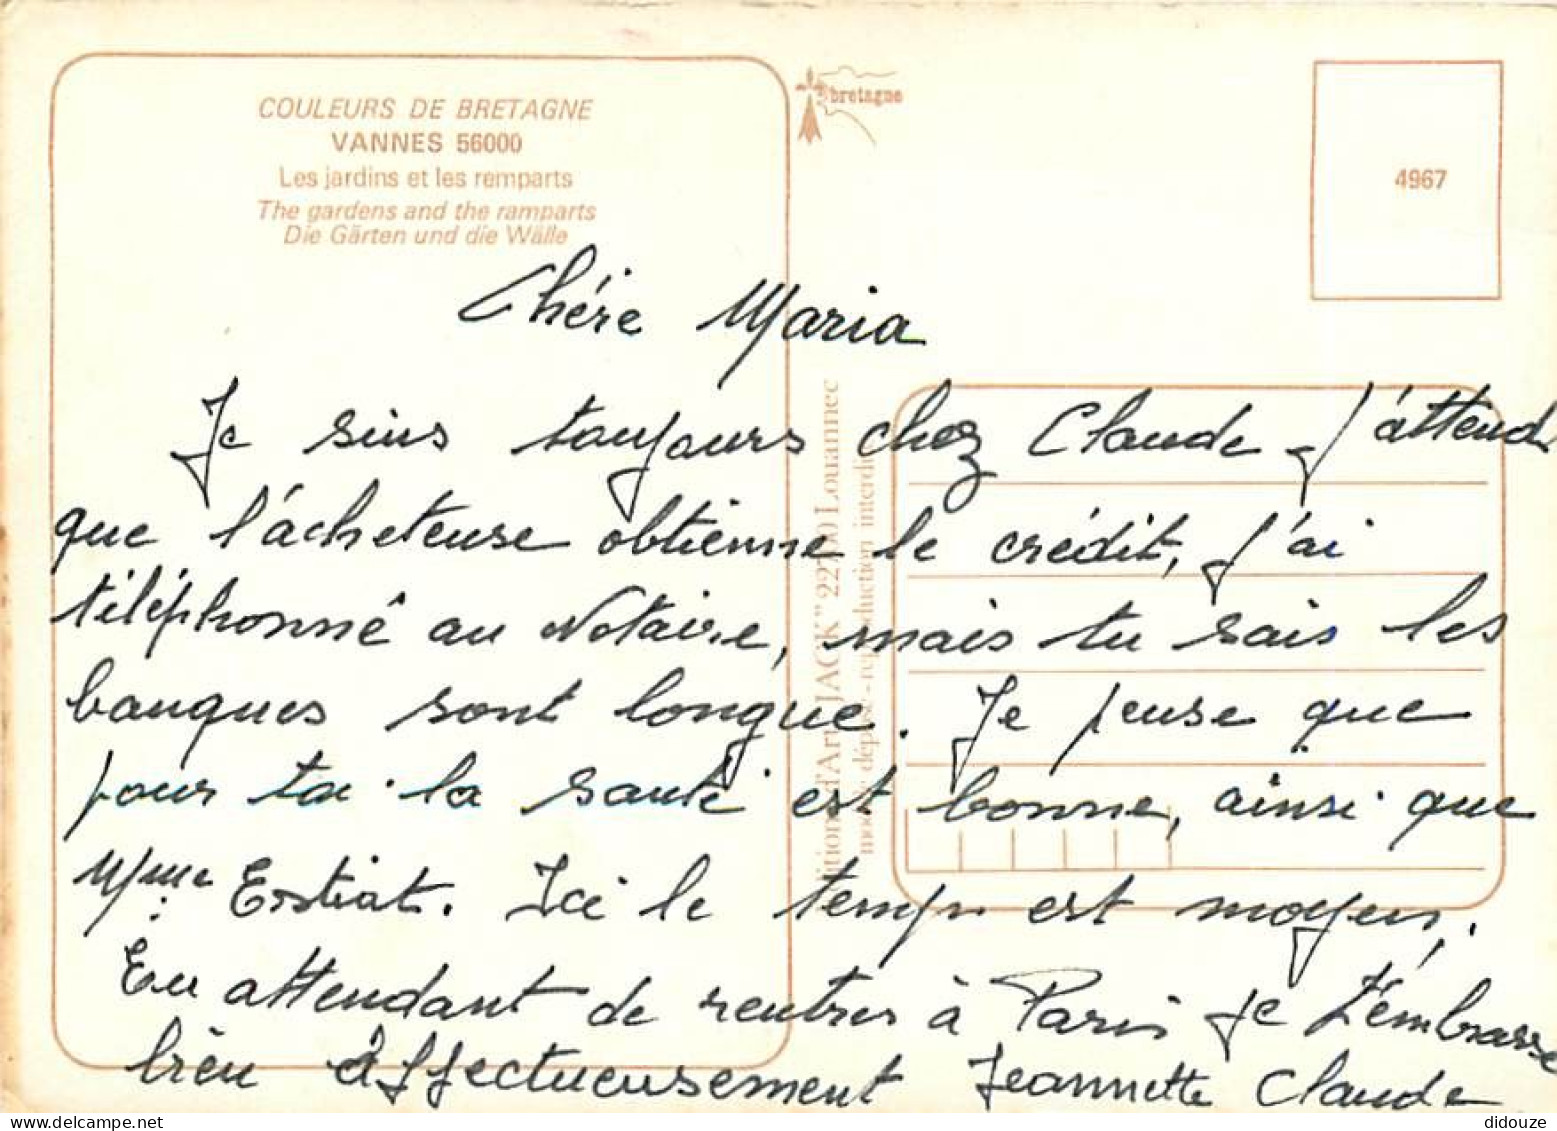 COULEURS DE BRETAGNE
VANNES 56000
Les jardins et les remparts
The gardens and the ramparts
Die Gärten und die Wälle
bretagne
4967
Chére Maria
Je suis toujours chez Claude - J'attend
que l'acheteuse obtienne le crédit, J'ai
téléphonné au Notaire, mais tu sais les
banques sont longue. Je pense que
pour toi la santé est bonne, ainsi que
Mme Estiat. Ici le temps est moyen,
En attendant de rentrer à Paris Je t'embrasse
bien affectueusement Jeannette Claude
d'Art "JACK" 22700 Louannec
modèle déposé - reproduction interdite
didouze